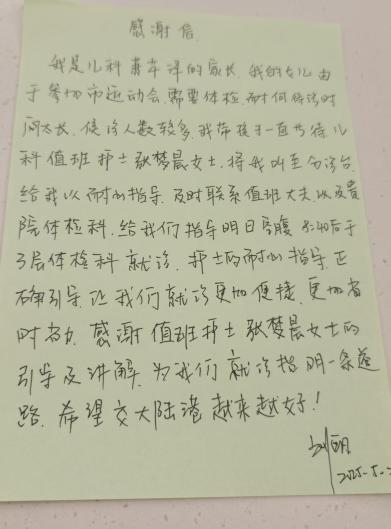 感谢信
我是儿科萧芊泽的家长，我的女儿由
于参加市运动会，需要体检，耐何待诊时
间太长，候诊人数较多，我带孩子一直等待儿
科值班护士张梦晨女士，将我叫至分诊台
给我以耐心指导，及时联系值班大夫，以及贵
院体检科，给我们指导明日空腹8:40后于
3层体检科就诊，护士的耐心指导，正
确引导让我们就诊更加便捷，更加省
时省力，感谢值班护士张梦晨女士的
引导及讲解，为我们就诊指明一条道
路，希望交大陆港越来越好！
2025.5.